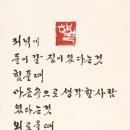 행복
저녁에
돌아갈 집이 있다는것
힘들때
마음속으로 생각할 사람
있다는것
외로울때